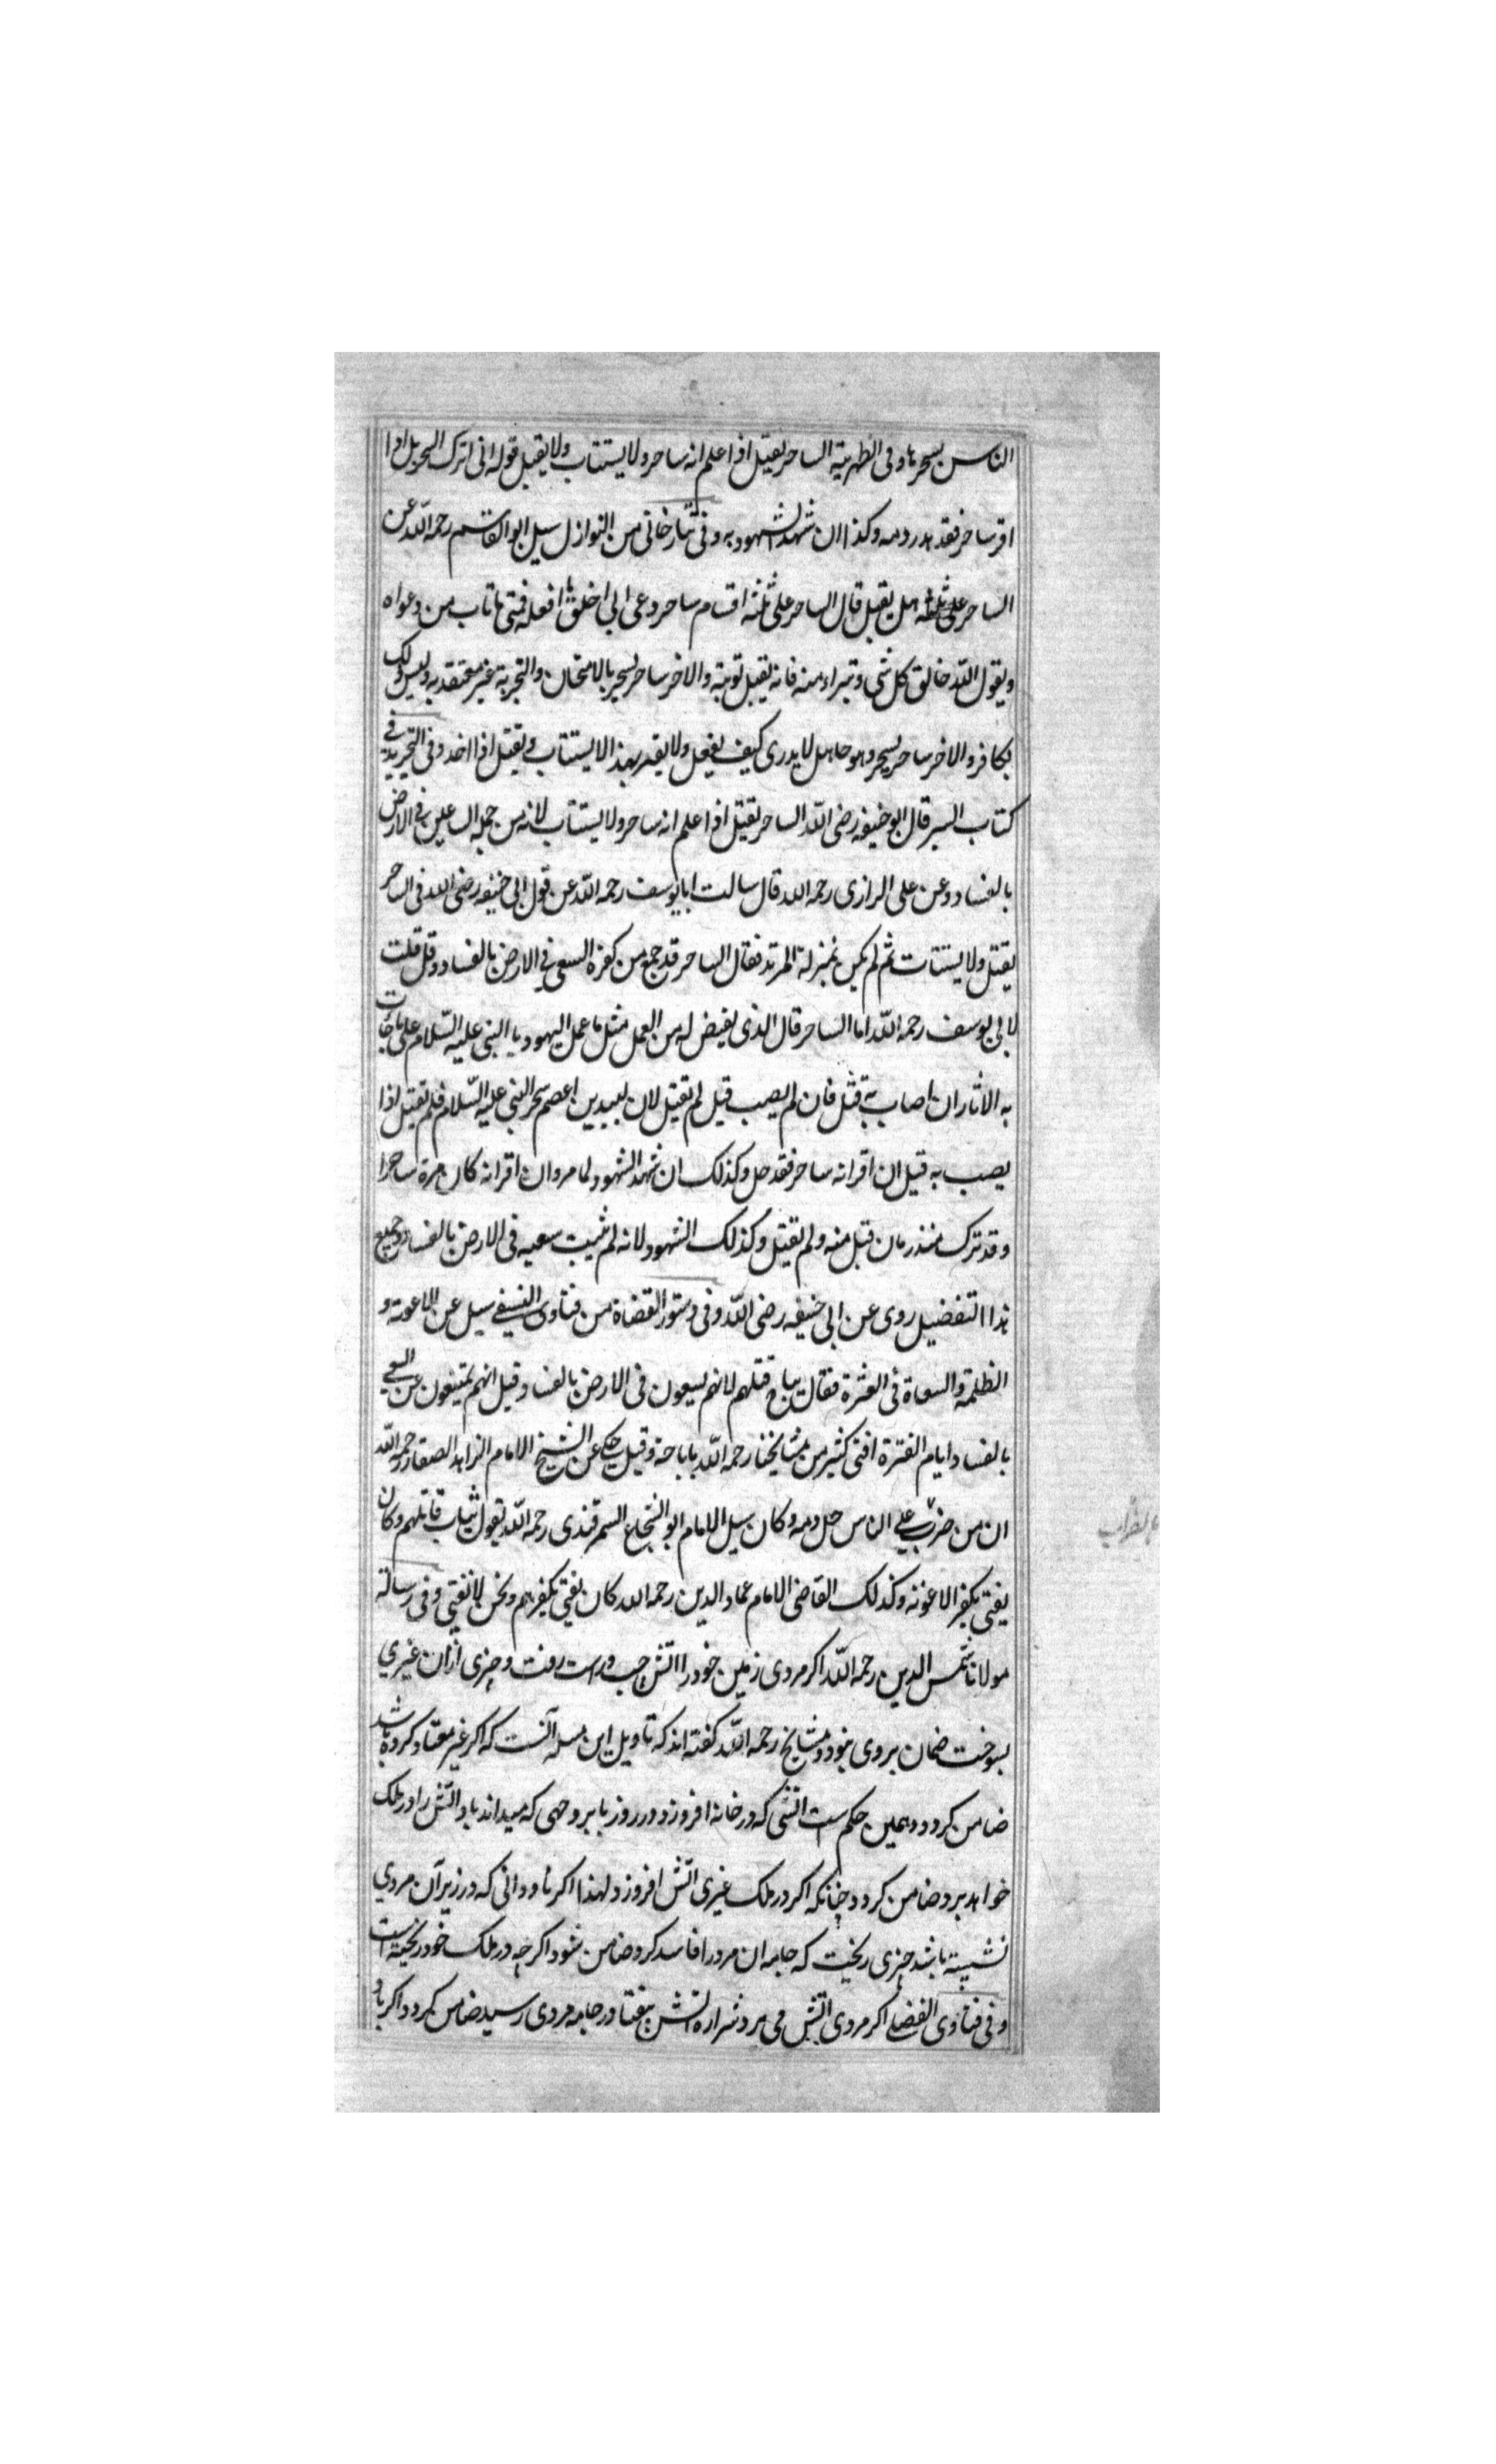 الناس بسحرها وفی الظهریة الساحر یقتل اذا علم انه ساحر ولا یستتاب ولا یقبل قوله انی اترک السحر بل اذا
اقر ساحر فقد هدر دمه وکذا ان شهد الشهود به وفی تتارخانی من النوازل سیل ابو القاسم رحمه الله عن
الساحر علی ثلثه هل یقبل قال الساحر علی ثلثه اقسام ساحر دعی الی اخلق ما افعله فمتی ما تاب من دعواه
ویقول الله خالق کل شی وتبراء منه فانه یقبل توبته والاخر ساحر یسحر بالامتحان والتجربة غیر معتقد به ولیس ذلک
بکافر والاخر ساحر یسحر وهو جاهل لا یدری کیف یفعل ولا یقدر بهذا لا یستتاب ویقتل اذا اخذ وفی التجرید فی
کتاب السیر قال ابو حنیفه رضی الله الساحر یقتل اذا علم انه ساحر ولا یستتاب لانه من جمله الساعین فی الارض
بالفساد وعن علی الرازی رحمه الله قال سالت ابا یوسف رحمه الله عن قول ابی حنیفه رضی الله فی الساحر
یقتل ولا یستتاب ثم لم یکن بمنزلة المرتد فقال الساحر قد جمع من کفره السعی فی الارض بالفساد وقل قلت
لابی یوسف رحمه الله اما الساحر قال الذی یفیض له من العمل مثل ما عمل الیهود یا النبی علیه السلام علی ما جات
به الاثار ان اصاب به قتل فان لم یصب قیل لم تقتل لان لبید بن اعصم سحر النبی علیه السلام فلم یقتل اذا
یصب به قیل ان اقر انه ساحر فقد حل وکذلک ان شهد الشهود لما مر وان اقر انه کان مرة ساحرا
وقد ترک منذ زمان قبل منه ولم یقتل وکذلک الشهود لانه لم یثبت سعیه فی الارض بالفساد وجمیع
هذا التفضیل روی عن ابی حنیفه رضی الله وفی دستور القضاة من فتاوی النسفی سیل عن الاعونة و
الظلمة والسعاة فی الفترة فقال یباح قتلهم لانهم یسعون فی الارض بالفساد وقیل انهم یمتنعون عن السعی
بالفساد ایام الفترة افتی کثیر من مشایخنا رحمه الله باباحة وقیل حکی عن الشیخ الامام الزاهد الصفار رحمه الله
ان من ضرب علی الناس حل دمه وکان سیل الامام ابو الشجاع السمرقندی رحمه الله یقول یثاب قاتلهم وکان
یفتی بکفر الاعونه وکذلک القاضی الامام عماد الدین رحمه الله کان یفتی بکفرهم ونحن لا نفتی وفی رسالة
مولانا شمس الدین رحمه الله اکر مردی زمین خود را اتش چپ وراست رفت وچیزی ازان غیری
بسوخت ضمان بروی نبود ومشایخ رحمه الله کفته اند که تاویل این مسله آنست که اکر غیر معتاد کرده باشد
ضامن کردد وهمین حکم است اتشی که در خانه افروزد در روز با بروجهی که میداند باد آتش را در ملک
خواهد برد ضامن کردد چنانکه اکر در ملک غیری اتش افروزد ولهذا اکر ناودانی که در زیر آن مردی
نشسته باشد چیزی ریخت که جامه ان مرد را فاسد کرد ضامن شود اکرچه در ملک خود ریخته است
وفی فتاوی الفضلی اکر مردی اتش می برد شراره اتش بیفتاد در جامه مردی رسید ضامن کردد اکر باد